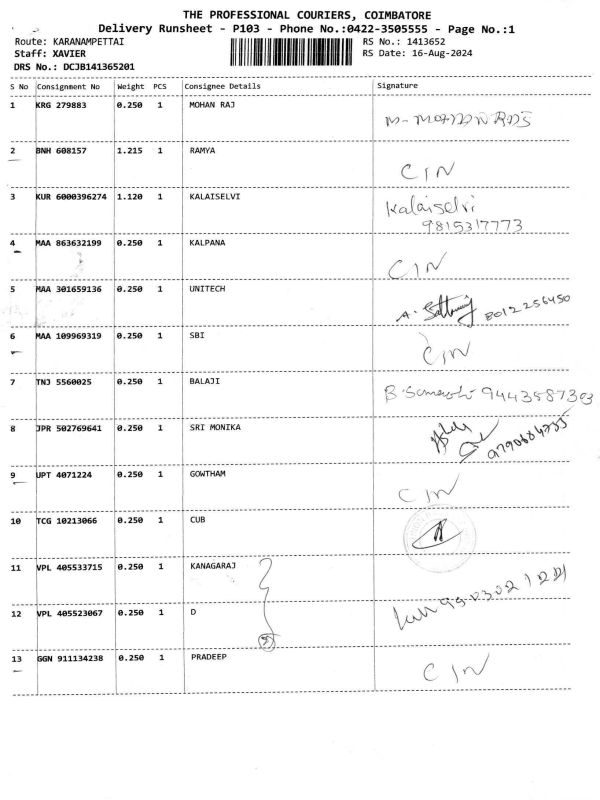 THE PROFESSIONAL COURIERS, COIMBATORE
Delivery Runsheet - P103 - Phone No.:0422-3505555 - Page No.:1
Route: KARANAMPETTAI RS No.: 1413652
Staff: XAVIER RS Date: 16-Aug-2024
DRS No.: DCJB141365201
S No Consignment No Weight PCS Consignee Details Signature
1 KRG 279883 0.250 1 MOHAN RAJ
M-MOHAN RAJ
2 BNH 608157 1.215 1 RAMYA
CIN
3 KUR 6000396274 1.120 1 KALAISELVI
Kalaiselvi
9815317773
4 MAA 863632199 0.250 1 KALPANA
CIN
5 MAA 301659136 0.250 1 UNITECH
A. 8012256450
6 MAA 109969319 0.250 1 SBI
CIN
7 TNJ 5560025 0.250 1 BALAJI
B. 9443587303
8 JPR 502769641 0.250 1 SRI MONIKA
9 UPT 4071224 0.250 1 GOWTHAM
CIN
10 TCG 10213066 0.250 1 CUB
11 VPL 405533715 0.250 1 KANAGARAJ
12 VPL 405523067 0.250 1 D
13 GGN 911134238 0.250 1 PRADEEP
CIN